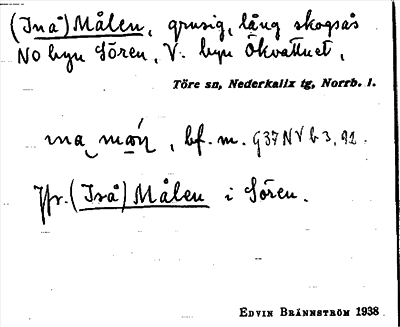 (Inå) Målen, grusig, lång skogsås
NO byn Sören, V. byn Ökvattnet,
Töre sn, Nederkalix tg, Norrb. l.
, bf. m. G37NVb3,92.
Jfr. (Iså) Målen i Sören.
EDVIN BRÄNNSTRÖM 1938